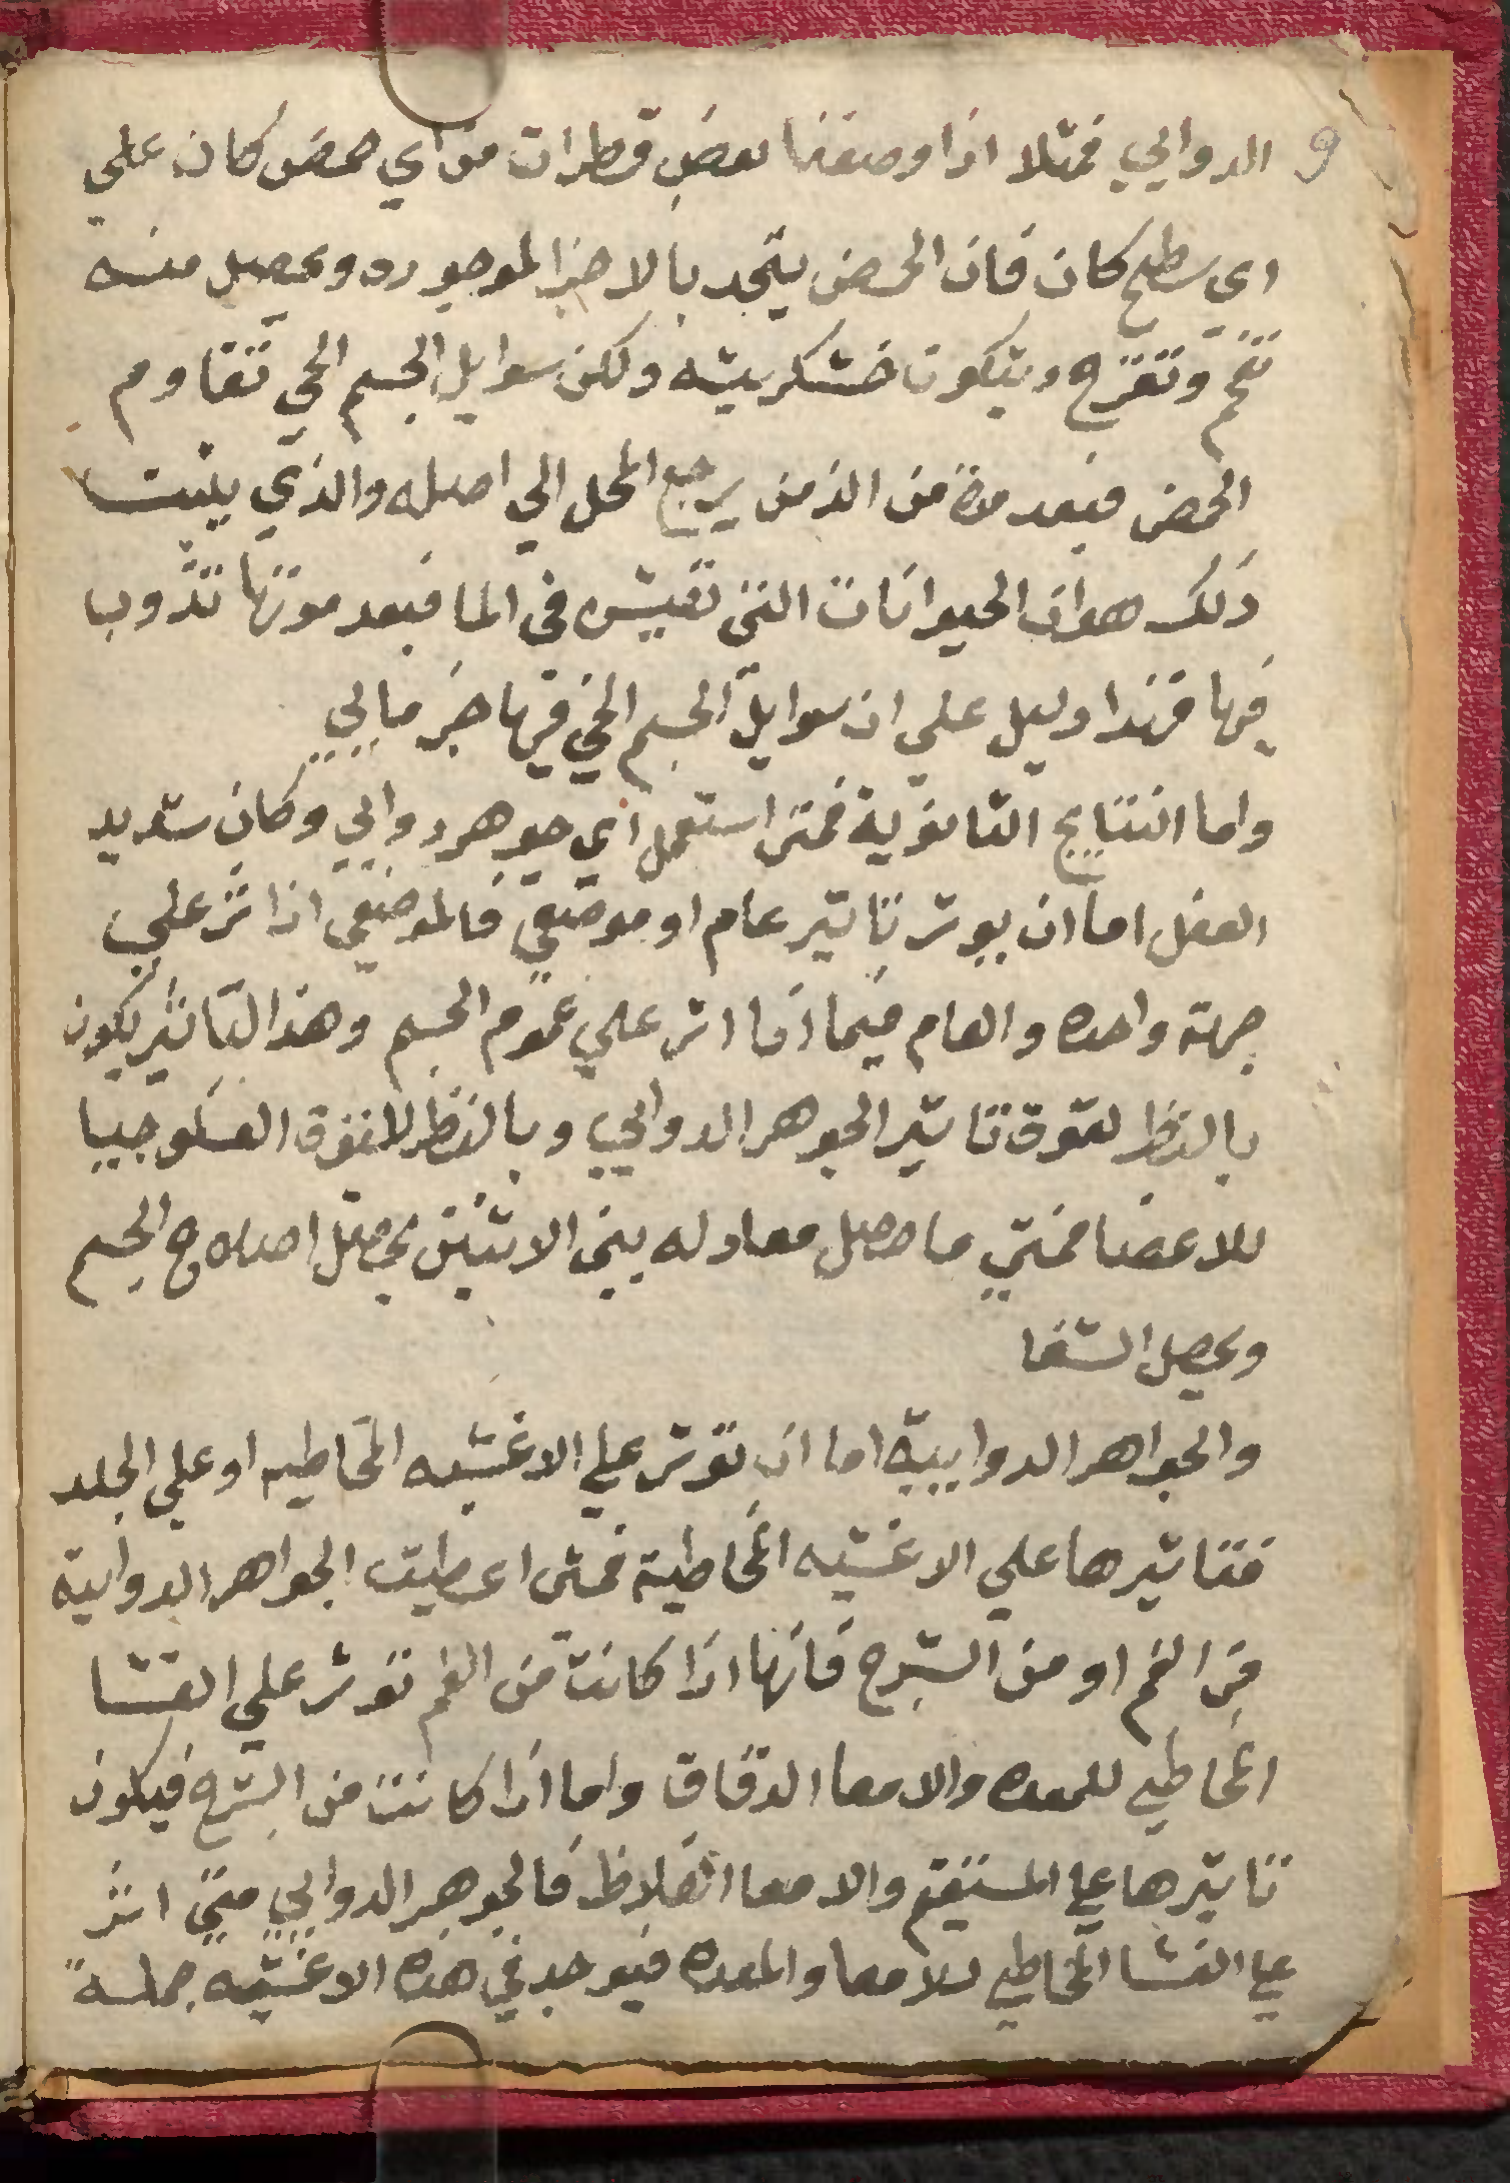 9 الدوايي فمثلا اذا وضعنا بعض قطرات من اي حمض كان علي
اي سطح كان فان الحمض يتحد بالاجزا الموجوده ويحصل منه
تفحم وتقرح ويتكون خشكريشه ولكن سوايل الجسم الحي تقاوم
الحمض فبعد مدة من الزمن يرجع المحل الي اصله والذي يثبت
ذلك هو ان الحيوانات التي تعيش في الما فبعد موتها تذوب
فيها فهذا دليل علي ان سوايل الجسم الحي فيها جز مايي
واما النتايج الثانوية فمتي استعمل اي جوهر دوايي وكان شديد
الفعل اما ان يوثر تاثير عام او موضعي فالموضعي اذا اثر علي
جهة واحده والعام فيما اذا اثر علي عموم الجسم وهذا التاثير يكون
بالنظر لقوة تاثير الجوهر الدوايي وبالنظر للقوة الفسلوجيا
للاعضا فمتي ما حصل معادله بين الاثنين يحصل اصلاح الجسم
ويحصل الشفا
والجواهر الدواييية اما ان توثر علي الاغشيه المخاطيه او علي الجلد
فتاثيرها علي الاغشيه المخاطية فمتي اعطيت الجواهر الدوايية
من الفم او من الشرج فانها اذا كانت من الفم توثر علي الغشا
المخاطي للمعده والامعا الدقاق واما اذا كانت من الشرج فيكون
تاثيرها علي المستقيم والامعا الغلاظ فالجوهر الدوايي متي اثر
علي الغشا المخاطي للامعا والمعده فيوجد في هذه الاغشيه جملة